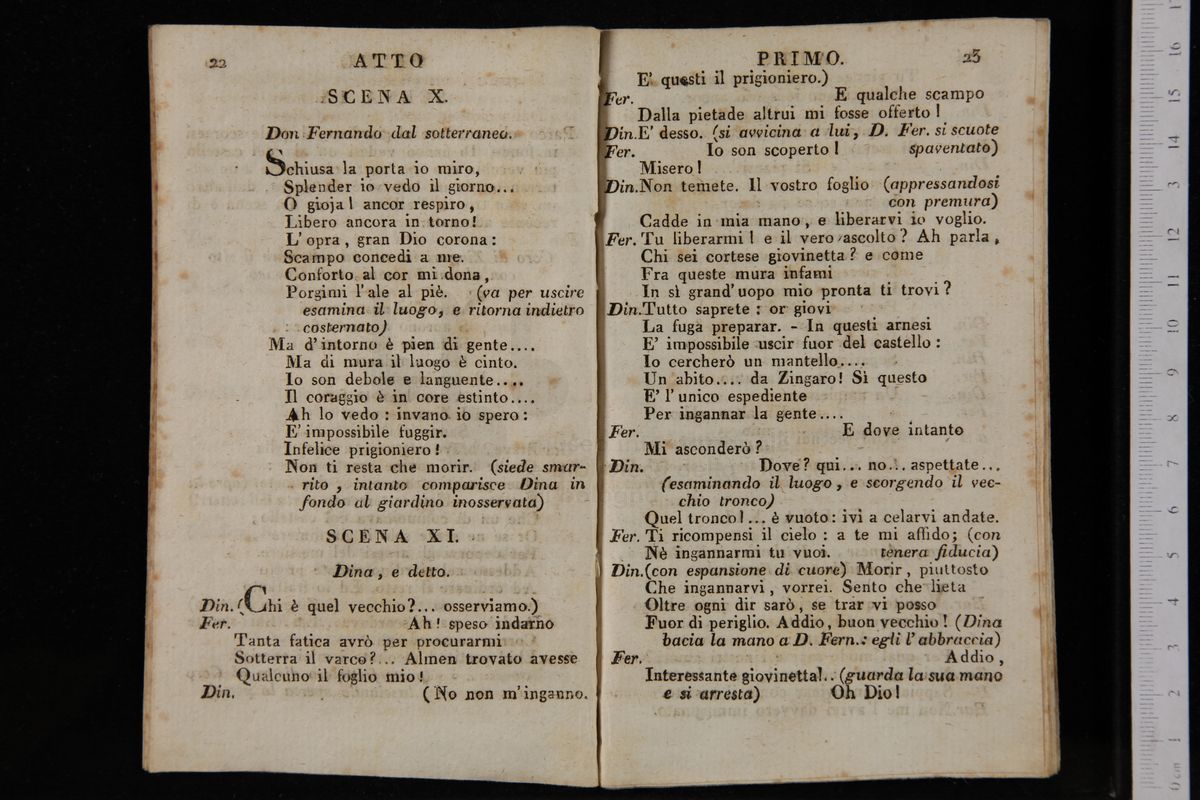 22
ATTO
SCENA X.
Don Fernando dal sotterraneo.
Schiusa la porta io miro,
Splender io vedo il giorno...
O gioja! ancor respiro,
Libero ancora in torno!
L'opra, gran Dio corona:
Scampo concedi a me.
Conforto al cor mi dona,
Porgimi l'ale al piè. (va per uscire
esamina il luogo, e ritorna indietro
costernato)
Ma d'intorno è pien di gente....
Ma di mura il luogo è cinto.
Io son debole e languente....
Il coraggio è in core estinto....
Ah lo vedo: invano io spero:
E' impossibile fuggir.
Infelice prigioniero!
Non ti resta che morir. (siede smar-
rito, intanto comparisce Dina in
fondo al giardino inosservata)
SCENA XI.
Dina, e detto.
Din. (Chi è quel vecchio?... osserviamo.)
Fer. Ah! speso indarno
Tanta fatica avrò per procurarmi
Sotterra il varco?... Almen trovato avesse
Qualcuno il foglio mio!
Din. (No non m'inganno.
PRIMO.
23
E' questi il prigioniero.)
Fer. E qualche scampo
Dalla pietade altrui mi fosse offerto!
Din. E' desso. (si avvicina a lui, D. Fer. si scuote
Fer. Io son scoperto! spaventato)
Misero!
Din. Non temete. Il vostro foglio (appressandosi
con premura)
Cadde in mia mano, e liberarvi io voglio.
Fer. Tu liberarmi! e il vero ascolto? Ah parla,
Chi sei cortese giovinetta? e come
Fra queste mura infami
In sì grand'uopo mio pronta ti trovi?
Din. Tutto saprete: or giovi
La fuga preparar. - In questi arnesi
E' impossibile uscir fuor del castello:
Io cercherò un mantello....
Un abito.... da Zingaro! Sì questo
E' l'unico espediente
Per ingannar la gente....
Fer. E dove intanto
Mi asconderò?
Din. Dove? qui... no... aspettate...
(esaminando il luogo, e scorgendo il vec-
chio tronco)
Quel tronco!... è vuoto: ivi a celarvi andate.
Fer. Ti ricompensi il cielo: a te mi affido; (con
Nè ingannarmi tu vuoi. tenera fiducia)
Din. (con espansione di cuore) Morir, piuttosto
Che ingannarvi, vorrei. Sento che lieta
Oltre ogni dir sarò, se trar vi posso
Fuor di periglio. Addio, buon vecchio! (Dina
bacia la mano a D. Fern.: egli l'abbraccia)
Fer. Addio,
Interessante giovinetta!.. (guarda la sua mano
e si arresta) Oh Dio!